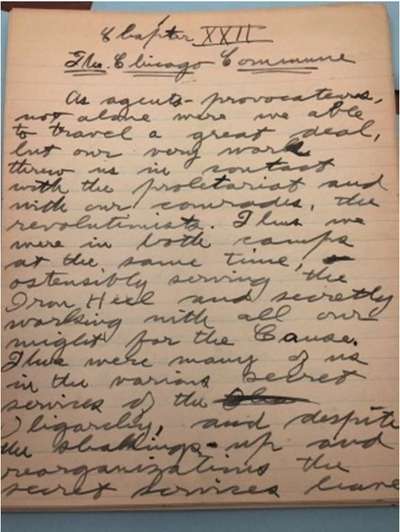 Chapter XXII
The Chicago Commune
As agents-provocateurs,
not alone were we able
to travel a great deal,
but our very work
threw us in contact
with the proletariat and
with our comrades, the
revolutionists. Thus we
were in both camps
at the same time,
ostensibly serving the
Iron Heel and secretly
working with all our
might for the Cause.
There were many of us
in the various secret
services of the
Oligarchy, and despite
the shakings-up and
reorganizations the
secret services have